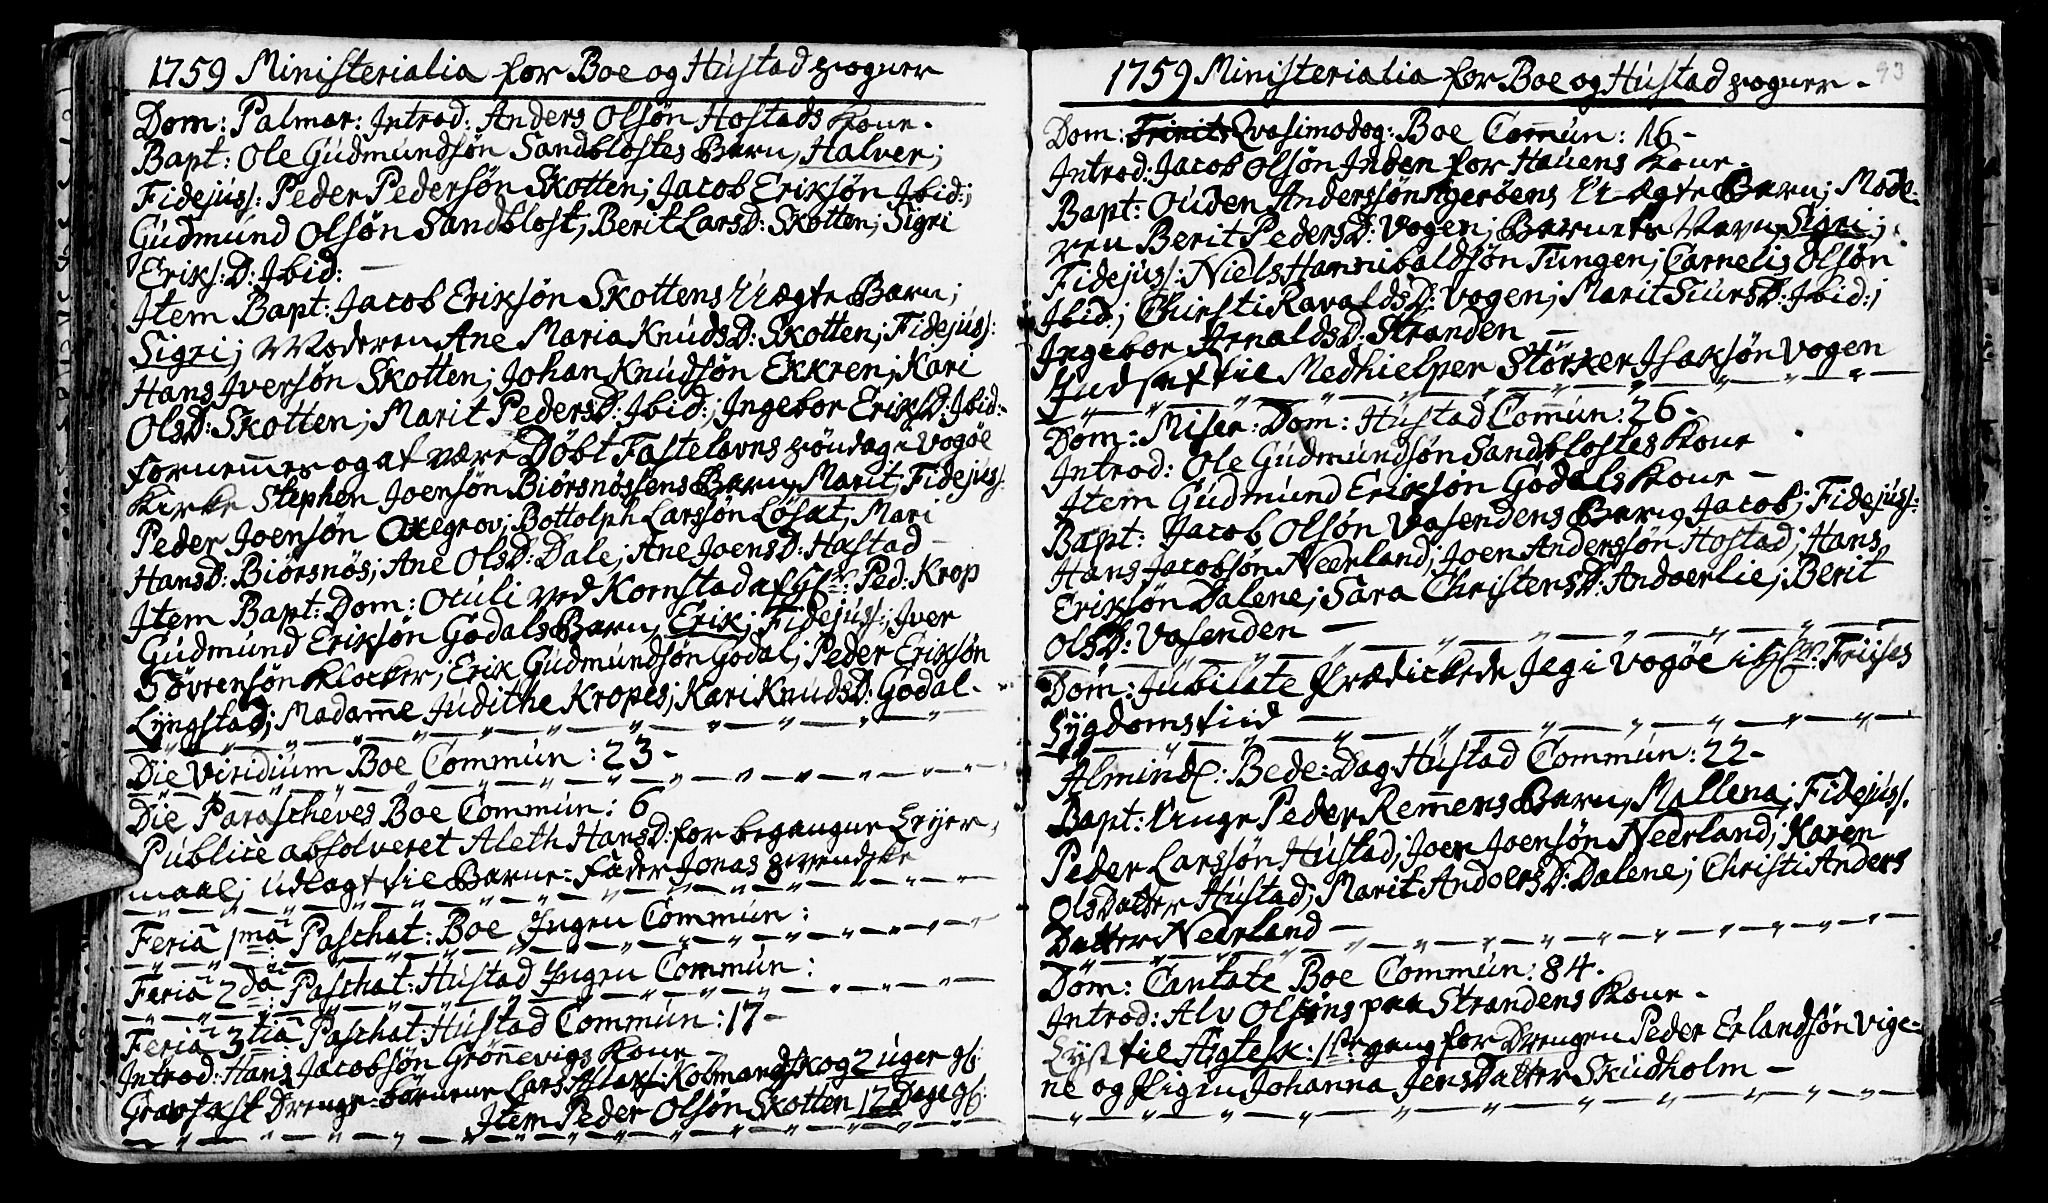 1759 Ministerialia for Boe og Hústad sogner
Dom: Palmar: Introd: Anders Olsøn Hostads Kone.
Bapt: Ole Gúdmúndsøn Sandblostes Barn, Halver;
Fidejúss: Peder Pedersøn Skotten; Jacob Eriksøn Ibid:;
Gúdmúnd Olsøn Sandblost; Berit LarsD: Skotten; Sigri
Eriks:D: Ibid: —
Item Bapt: Jacob Eriksøn Skottens Uægte Barn;
Sigri; Moderen Ane Maria KnúdsD: Skotten; Fidejúss:
Hans Iversøn Skotten; Johan Knúdsøn Ekkren; Kari
OlsD: Skotten; Marit PedersD: Ibid:; Ingebor EriksD: Ibid:
fornemmes og at være Døbt Fastelavns søndag Vogöe
Kirke Stephen Joensøn Biørsnössens Barn, Marit; Fidejúss:
Peder Joensøn Oxegrov; Bottolph Larssøn Lösæt; Mari
HansD: Biørsnös; Ane OlsD: Dale; Ane JoensD: Hastad —
Item Bapt: Dom: Oculi ved Kornstad af Hr: Ped: Krop
Gúdmúnd Eriksøn Godals Barn, Erik; Fidejúss:; Iver
Sövrensøn Klocker; Erik Gúdmúndsøn Godal; Peder Eriksøn
Lyngstad; Madamme Júdithe Kropes; Kari KnúdsD: Godal.
Die Viridiúm Boe Commún: 23 —
Die Parascheves Boe Commún: 6
Públice absolveret Aleth HansD: for begangne Leyer-
maal; Udlagt til Barne-Fader Jonas svendske
Feria 1ma Paschat: Boe Ingen Commún:
Feria 2da: Paschat: Hústad Ingen Commún:
Feria 3tia Paschat: Hústad Commún: 17 —
Introd: Hans Jacobsøn Grönnevigs Kone —
Gravfæst Drenge-börnene Lars Kolmandskog 2 úger gl:
Item Peder Olsøn Skotten 12 Dage gl:
1759 Ministerialia for Boe og Hústad sogner. 93
Dom: Trinit Qvasimodog: Boe Commún: 16 —
Introd: Jacob Olsøn Inden for Hauens Kone —
Bapt: Ouden Anderssøn Ageröens U-ægte Barn; Mode-
ren Berit PedersD: Vogen; Barnets Navn Sigri;
Fidejúss: Niels Hannibaldsøn Tungen; Cornelis Olsøn
Ibid:; Chirsti RavaldsD: Vogen; Marit SiursD: Ibid:;
Ingebor ArnaldsD: Stranden —
Indsat til Medhielper Störker Isaksøn Vogen
Dom: Miser: Dom: Hústad Commún: 26 —
Introd: Ole Gúdmúndsøn Sandblostes Kone
Item Gúdmúnd Eriksøn Godals Kone —
Bapt: Jacob Olsøn Vasendens Barn, Jacob; Fidejúss:
Hans Jacobsøn Neerland; Joen Anderssøn Hostad; Hans
Eriksøn Dalene; Sara ChristensD: Andoerlie; Berit
OlsD: Vasenden —
Dom: Júbilate Prædickede Jeg i Vogöe i Hr: Friises
Sygdoms tiid —
Almindl: Bede-Dag Hústad Commún: 22 —
Bapt: Unge Peder Remmens Barn, Mallena; Fidejúss.
Peder Larssøn Hústad; Joen Joensøn Neerland; Karen
OlsDatter Hústad; Marit AndoersD: Dalene; Christi Anders
Datter Neerland —
Dom: Cantate Boe Commún: 84.
Introd: Alv Olsøns paa Strandens Kone —
Lyst til Ægtesk: 1ste gang for Drengen Peder Erlandsøn Vige-
ne og Pigen Johanna JensDatter Skúdholm —